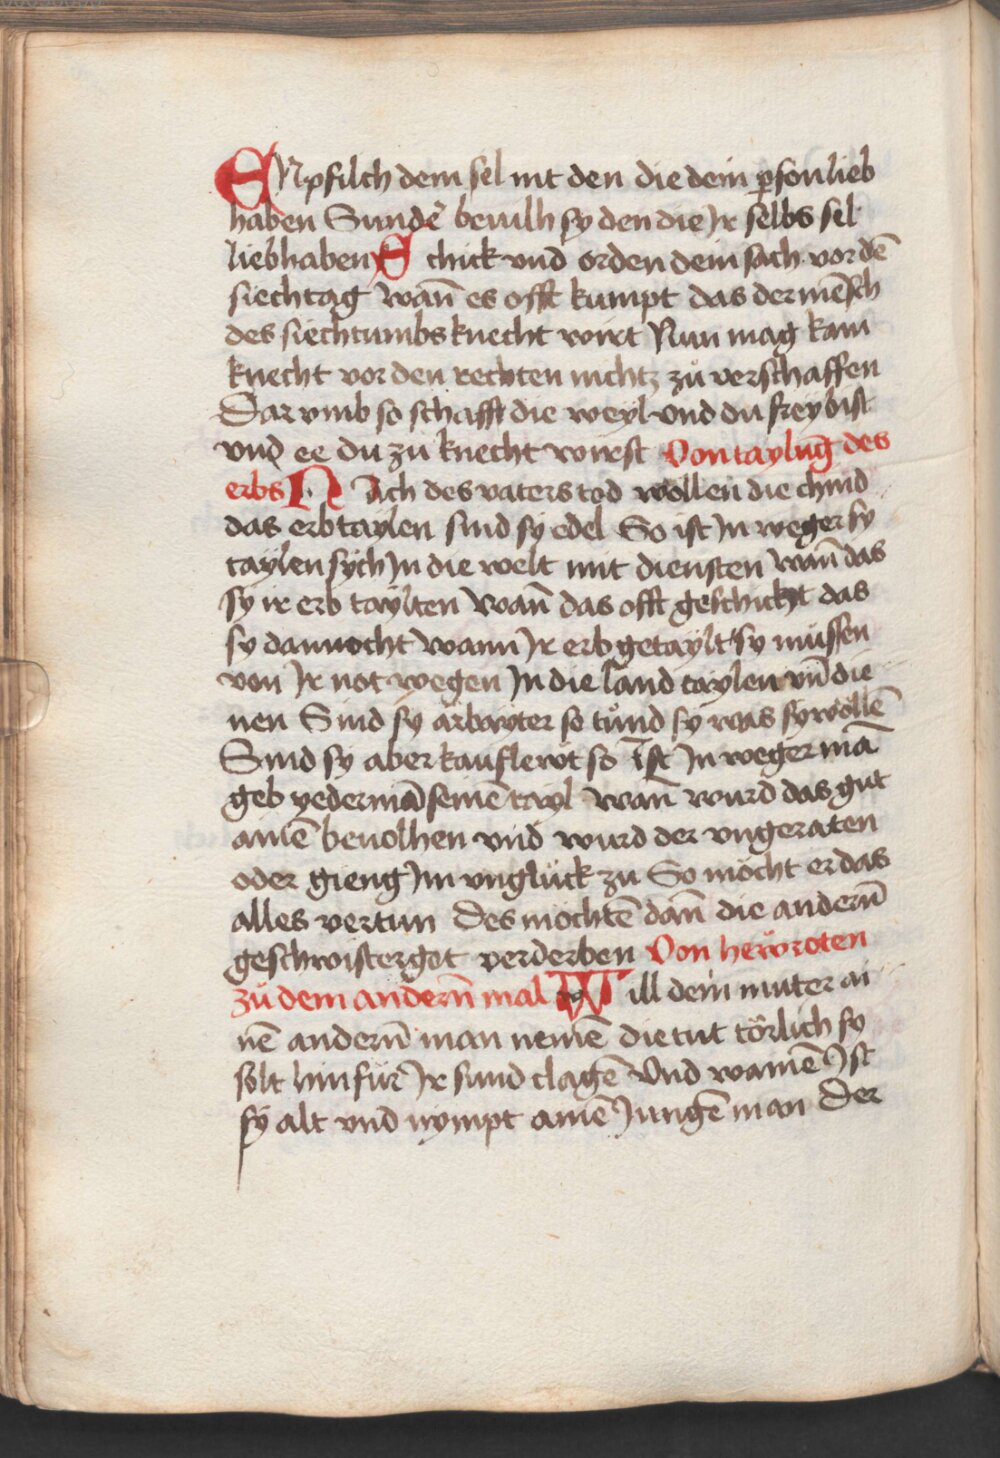 ENpfilch dem sel nit den die dein ꝑson lieb
haben Sundē beuilh sy den die Jr selbs sel
liebhaben Schick vnd orden dein sach vor dē
siechtag Wan̄ es offt kumpt das der mēsch
des siechtumbs knecht wirt Nun mag kain
knecht vor den rechten nichtz zů verschaffen
Dar vmb so schafft die weyl vnd du frey bist
vnd ee du zu knecht wirst Von taylūg des
erbs Nach des vaters tod wollen die chind
das erb taylen sind sy edel So ist Jn weger sy
taylen sych Jn die welt mit diensten Wan̄ das
sy ir erb taylten Wan̄ das offt geschicht das
sy dannocht Wann Jr erb getaylt sy müssen
von Jr not wegen Jn die land taylen vn̄ die
nen Sind sy arbayter so tůnd sy was sy wöllē
Sind sy aber kauflewt so ist Jn weger mā
geb yedermā seinē tayl Wan̄ wurd das gut
ainē beuolhen vnd wurd der vngeraten
oder gieng Jm vnglück zu So möcht er das
alles vertun Des möchtē dan̄ die andern̄
geschwistergot verderben Von hewroten
zů dem andern̄ mal Will dein můter ai
nē andern̄ man nemē die tut törlich sy
solt hinfür Jr sund clagē Vnd wainē Jst
sy alt vnd nympt ainē Jungē man Der